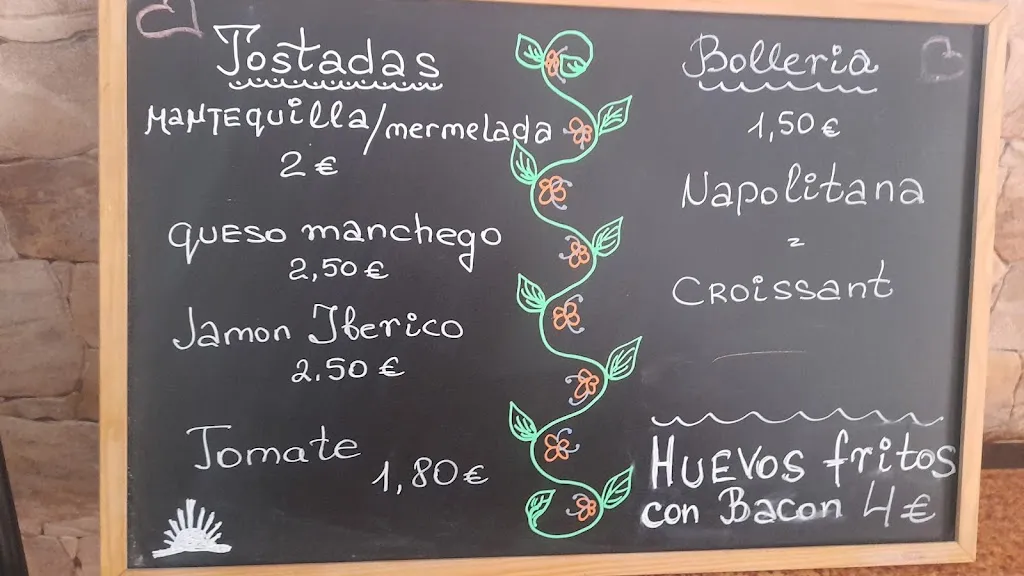 Tostadas
MANTEquilla/mermelada
2 €
QUESO manchego
2,50 €
Jamon Iberico
2.50 €
Tomate
1,80 €
Bolleria
1,50 €
Napolitana
CROissant
HUEVOS fritos
con Bacon 4 €